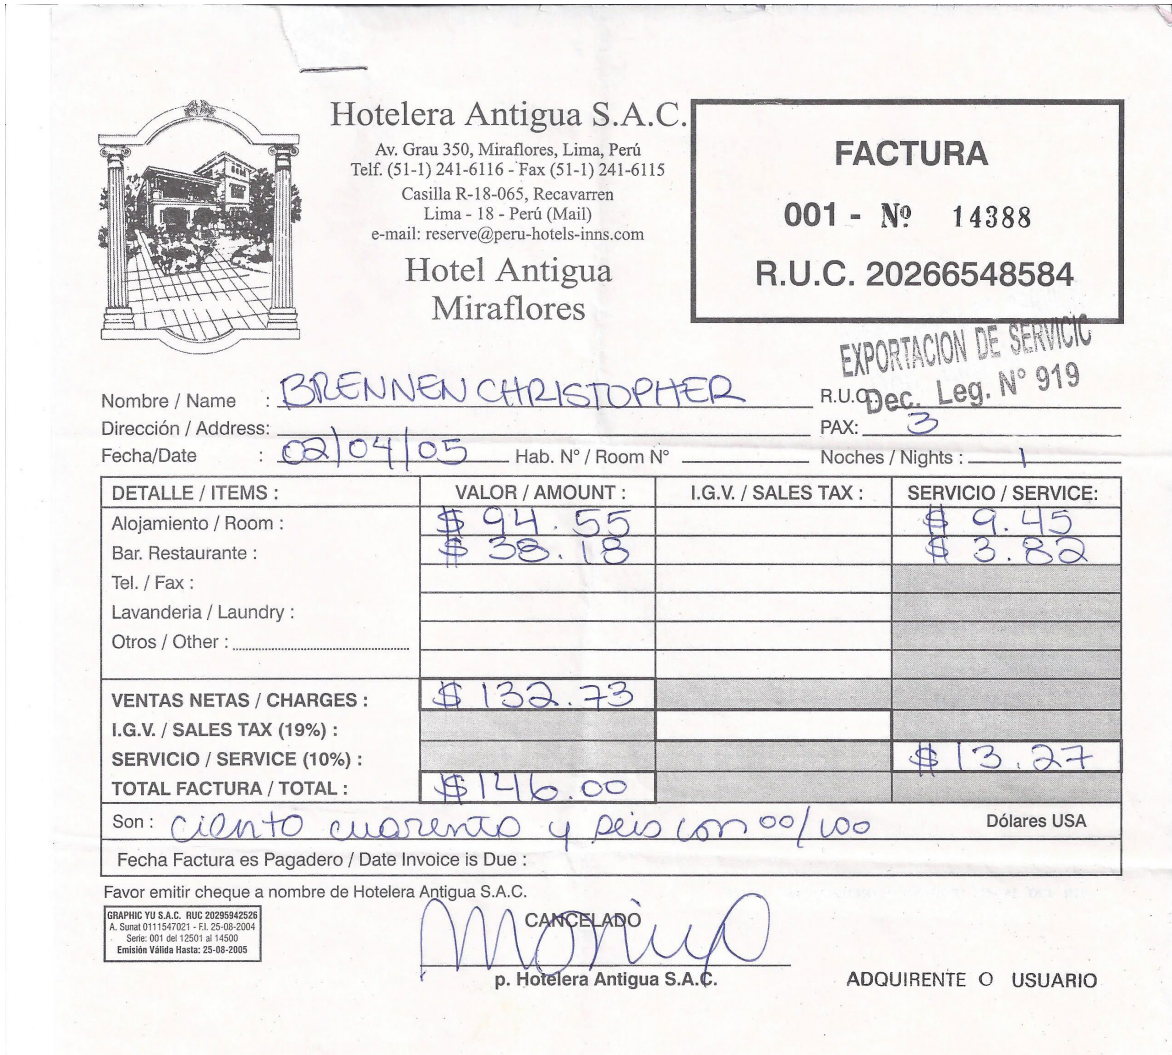 Hotelera Antigua S.A.C.
Av. Grau 350, Miraflores, Lima, Perú
Telf. (51-1) 241-6116 - Fax (51-1) 241-6115
Casilla R-18-065, Recavarren
Lima - 18 - Perú (Mail)
e-mail: reserve@peru-hotels-inns.com
Hotel Antigua
Miraflores
FACTURA
001 - Nº 14388
R.U.C. 20266548584
EXPORTACION DE SERVICIC
Dec. Leg. N° 919
Nombre / Name : BRENNEN CHRISTOPHER R.U.C.:
Dirección / Address: PAX: 3
Fecha/Date : 02/04/05 Hab. N° / Room N° Noches / Nights : 1
DETALLE / ITEMS : VALOR / AMOUNT : I.G.V. / SALES TAX : SERVICIO / SERVICE:
Alojamiento / Room : $ 94.55 $ 9.45
Bar. Restaurante : $ 38.18 $ 3.82
Tel. / Fax :
Lavanderia / Laundry :
Otros / Other :
VENTAS NETAS / CHARGES : $ 132.73
I.G.V. / SALES TAX (19%) :
SERVICIO / SERVICE (10%) : $ 13.27
TOTAL FACTURA / TOTAL : $146.00
Son : ciento cuarenta y seis con 00/100 Dólares USA
Fecha Factura es Pagadero / Date Invoice is Due :
Favor emitir cheque a nombre de Hotelera Antigua S.A.C.
GRAPHIC YU S.A.C. RUC 20295942526
A. Sunat 0111547021 - F.I. 25-08-2004
Serie: 001 del 12501 al 14500
Emisión Válida Hasta: 25-08-2005
CANCELADO
p. Hotelera Antigua S.A.C.
ADQUIRENTE O USUARIO